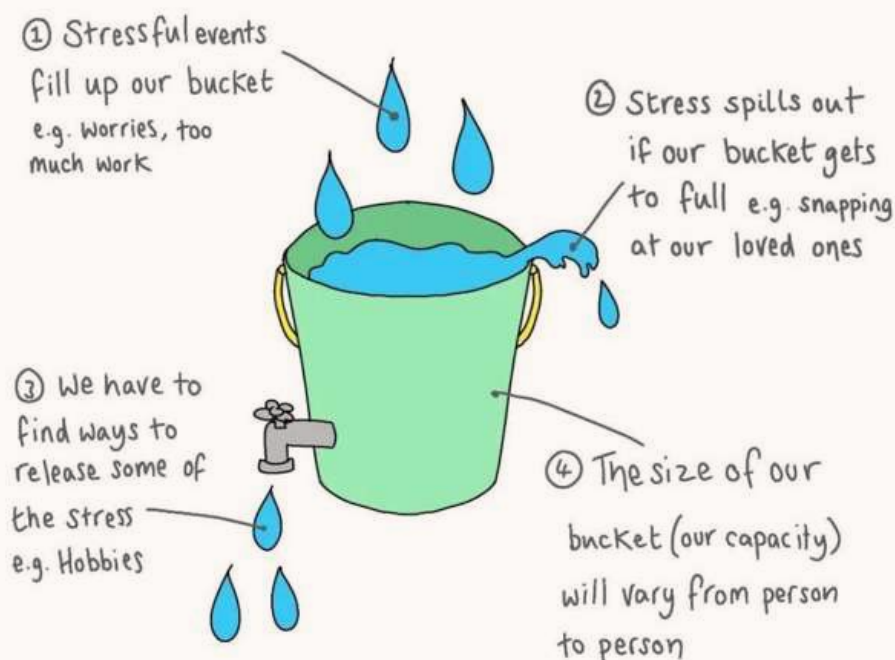 ① Stressful events
fill up our bucket
e.g. worries, too
much work
② Stress spills out
if our bucket gets
to full e.g. snapping
at our loved ones
③ We have to
find ways to
release some of
the stress
e.g. Hobbies
④ The size of our
bucket (our capacity)
will vary from person
to person